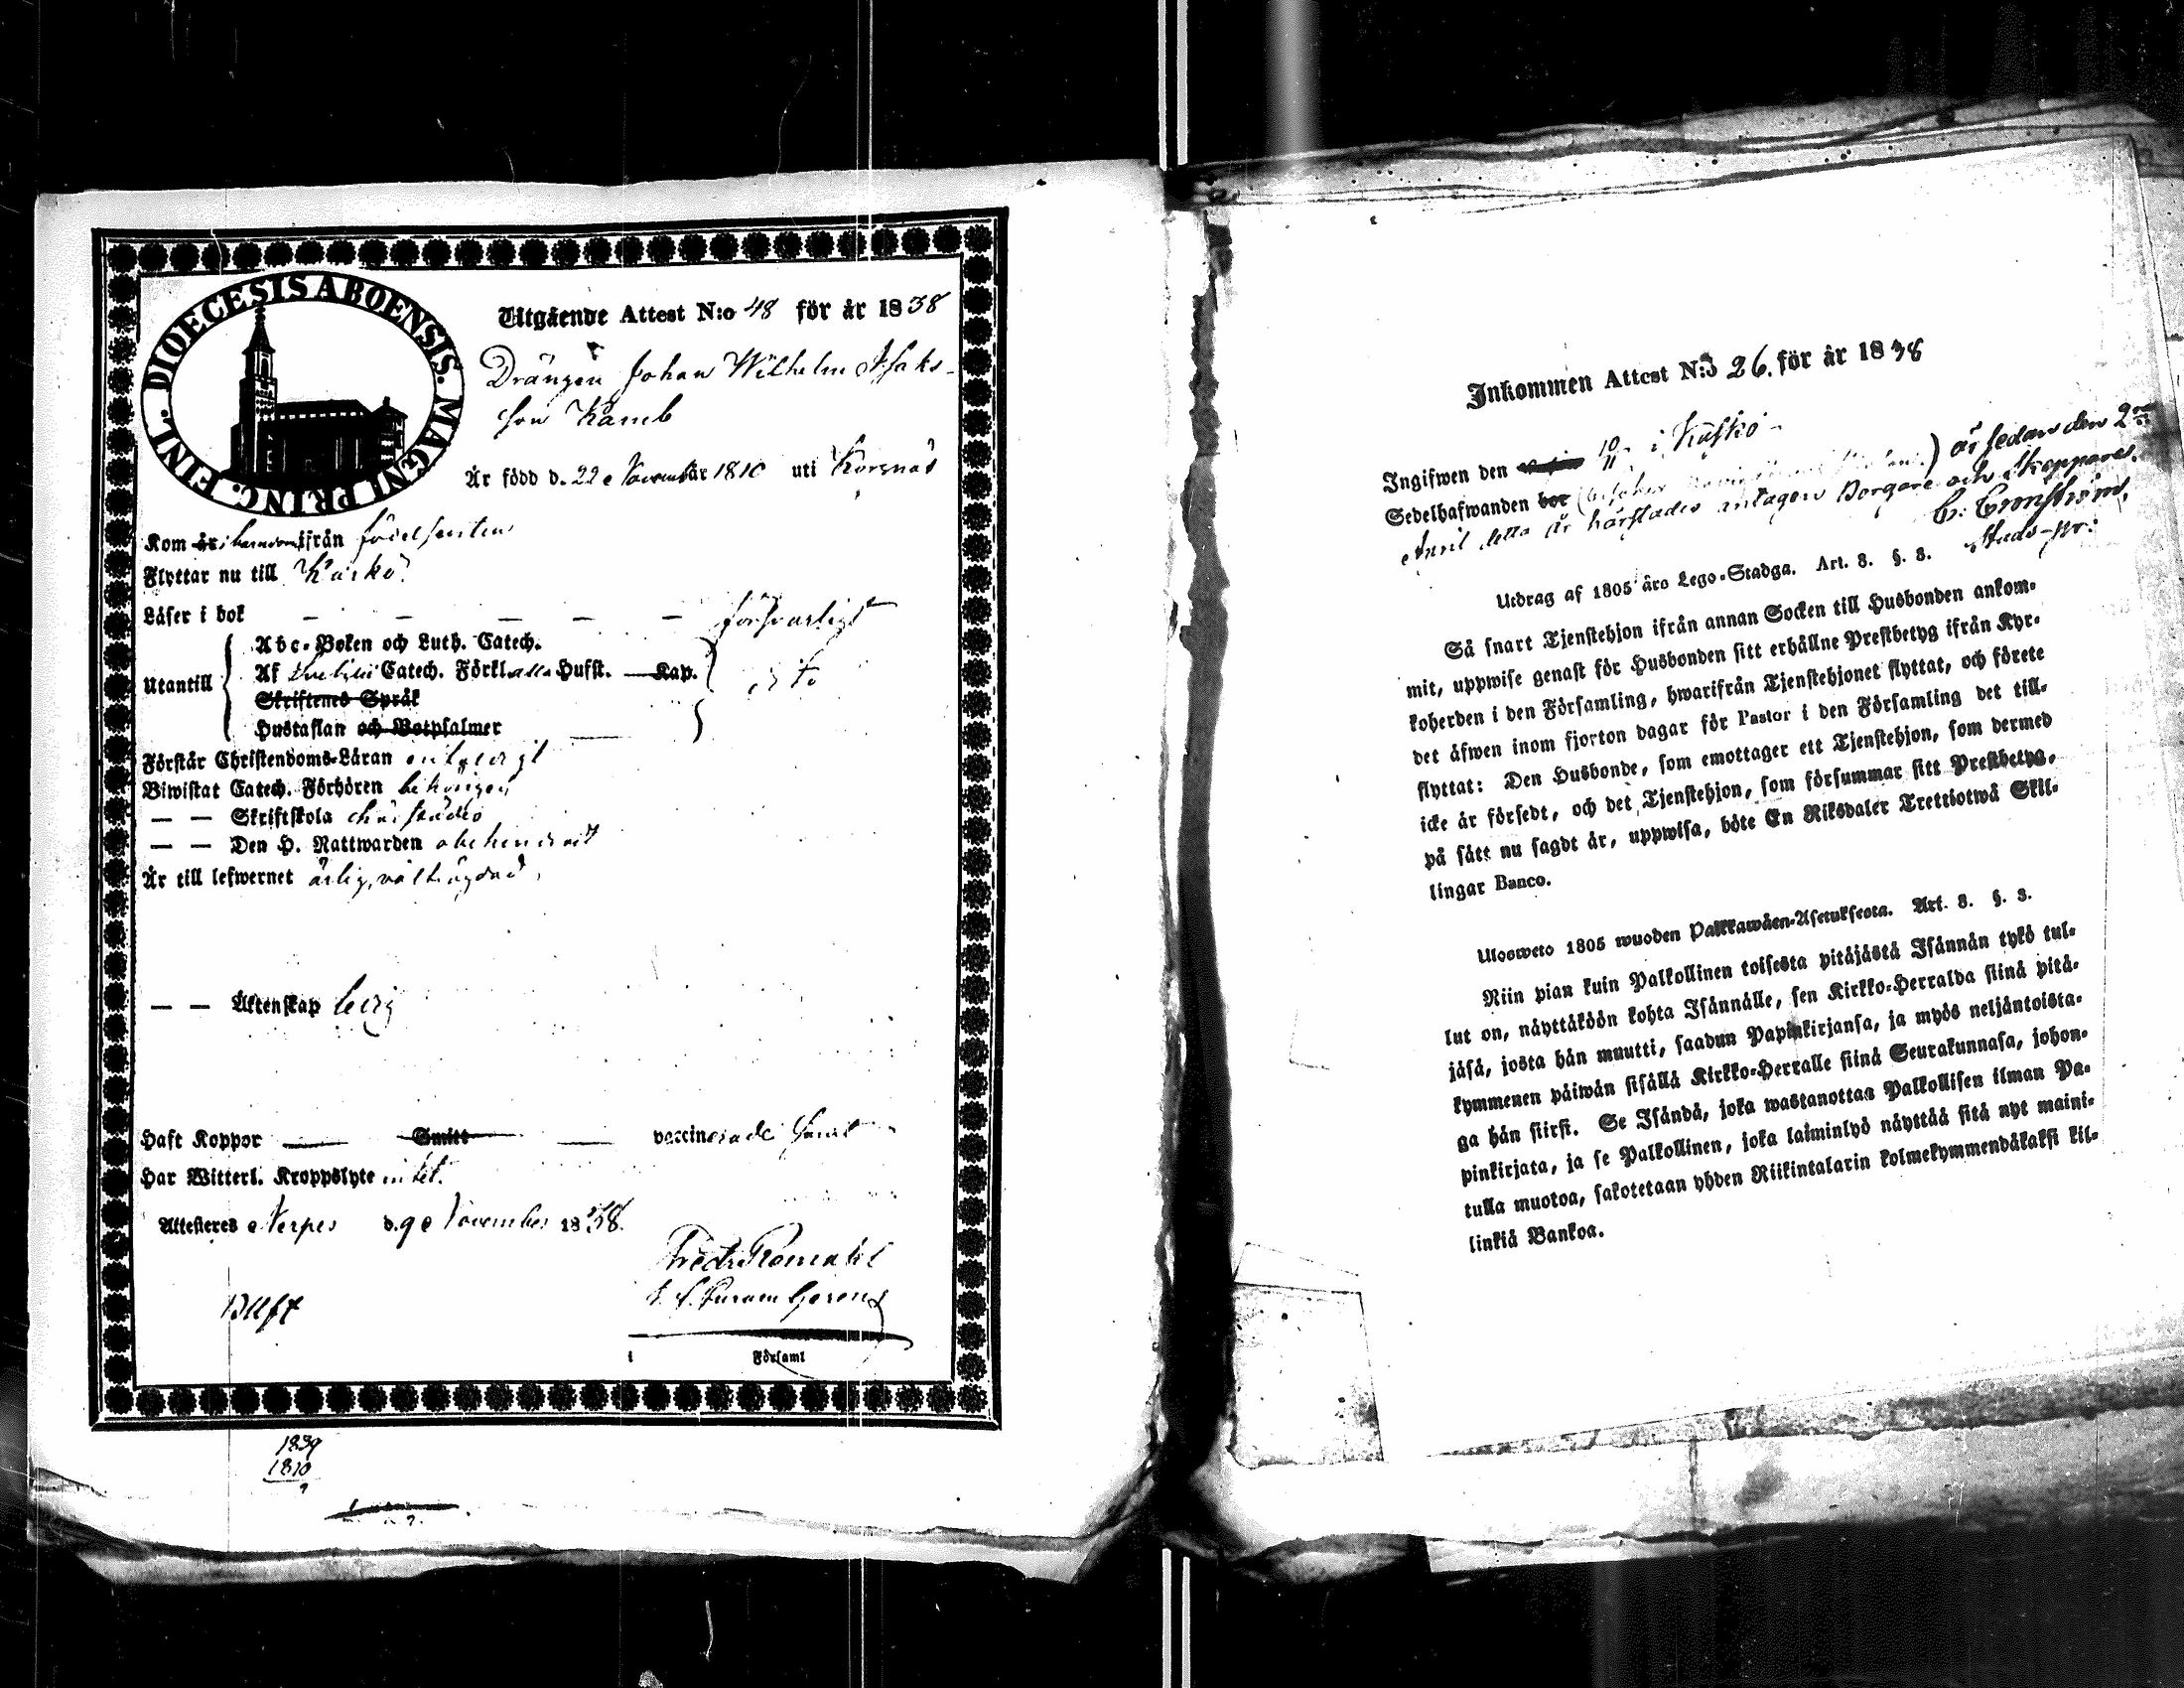 DIOECESIS ABOENSIS. MAGNI PRINC. FINL.
Utgående Attest N:o 48 för år 1838
Drängen Johan Wilhelm Isaks-
son Kamb
Är född d. 22 November 1810 uti Korsnäs
Kom är i barndom ifrån födelseorten
Flyttar nu till Kaskö.
Läser i bok — — — — — försvarligt
Utantill
Abc-Boken och Luth. Catech.
Af Svebilii Catech. Förkl. alla Husst. — Kap. dito
Skriftenes Språk
Hustaflan och Botpsalmer —
Förstår Christendoms-Läran
Biwistat Catech. Förhören
— — Skriftskola
— — Den H. Nattwarden obehindrad
Är till lefwernet ärlig,
— — Äktenskap ledig
Haft Koppor — Smitt — vaccinerade
Har Witterl. Kroppslyte intet.
Attesteras Nerpes d. 9 November 1838.
i Församl
1839
1810
Inkommen Attest N:o 26. för år 1838
Ingifwen den 10/11 i Kaskö
Sedelhafwanden bor är sedan den 2
April detta år härstädes antagen Borgare och Skeppare.
Utdrag af 1805 års Lego-Stadga. Art. 3. §. 3.
Så snart Tjenstehjon ifrån annan Socken till Husbonden ankom-
mit, uppwise genast för Husbonden sitt erhållne Prestbetyg ifrån Kyr-
koherden i den Församling, hwarifrån Tjenstehjonet flyttat, och förete
det äfwen inom fjorton dagar för Pastor i den Församling det till-
flyttat: Den Husbonde, som emottager ett Tjenstehjon, som dermed
icke är försedt, och det Tjenstehjon, som försummar sitt Prestbetyg,
på sätt nu sagdt är, uppwisa, böte En Riksdaler Trettiotwå Skil-
lingar Banco.
Ulosweto 1805 wuoden Palkkawäen-Asetuksesta. Art. 3. §. 3.
Niin pian kuin Palkollinen toisesta pitäjästä Isännän tykö tul-
lut on, näyttäköön kohta Isännälle, sen Kirkko-Herralda siinä pitä-
jäsä, josta hän muutti, saadun Papinkirjansa, ja myös neljäntoista-
kymmenen päiwän sisällä Kirkko-Herralle siinä Seurakunnasa, johon-
ga hän siirsi. Se Isändä, joka wastanottaa Palkollisen ilman Pa-
pinkirjata, ja se Palkollinen, joka laiminlyö näyttää sitä nyt maini-
tulla muotoa, sakotetaan yhden Riikintalarin kolmekymmendäkaksi kil-
linkiä Bankoa.